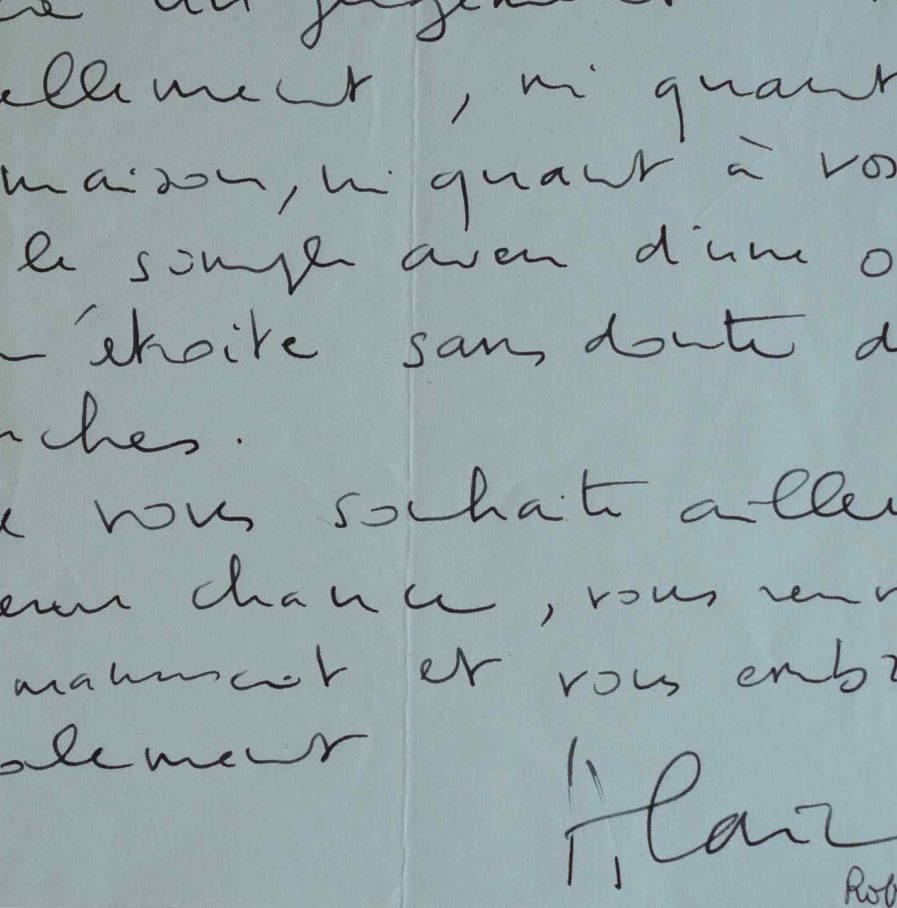 un jugement
ellement, ni quant
maison, ni quant à vos
le simple aveu d'une o
étroite sans doute d
nches.
e vous souhaite aille
eure chance, vous renv
manuscrit et vous emb
alement
Alain
Rob